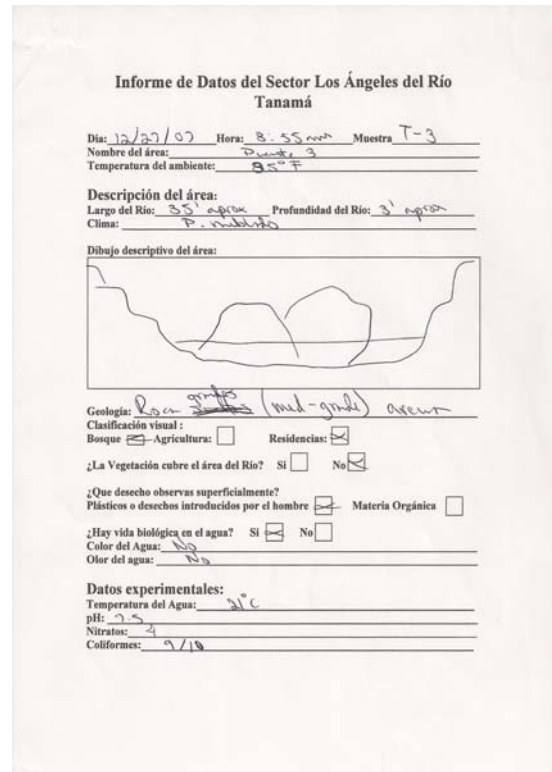 Informe de Datos del Sector Los Ángeles del Río
Tanamá
Dia: 12/27/07 Hora: 8:55 am Muestra T-3
Nombre del área: Puente 3
Temperatura del ambiente: 85° F
Descripción del área:
Largo del Río: 35' aprox Profundidad del Río: 3' aprox
Clima: P. nublado
Dibujo descriptivo del área:
grandes
Geología: Roca (med-grande) arena
Clasificación visual :
Bosque Agricultura: Residencias:
¿La Vegetación cubre el área del Río? Si No
¿Que desecho observas superficialmente?
Plásticos o desechos introducidos por el hombre Materia Orgánica
¿Hay vida biológica en el agua? Si No
Color del Agua: No
Olor del agua: No
Datos experimentales:
Temperatura del Agua: 21°C
pH: 7.5
Nitratos: 4
Coliformes: 9/10